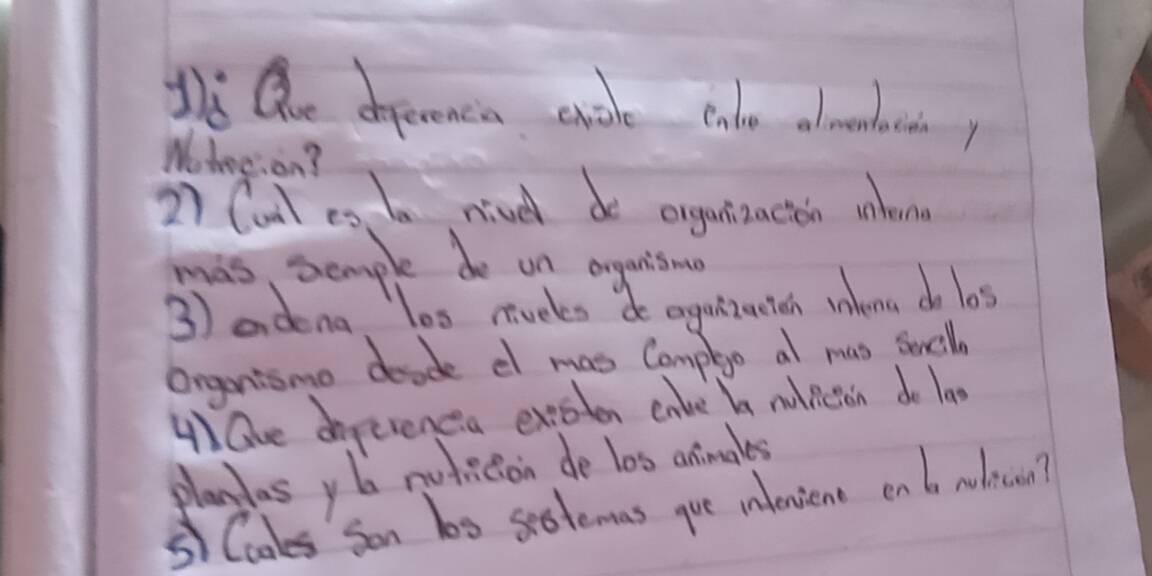 1) ¿Que diferencia existe entre alimentación y
Nutrición?
2) Cual es la nivel de organización interna
más semple de un organismo
3) ordena los niveles de oganización interna de los
Organismo desde el mas Complejo al mas Sencillo
4) Que diferencia existen entre la nutrición de las
plantas y la nutrición de los animales
5) Cuales son los sistemas que interviene en la nutrición?